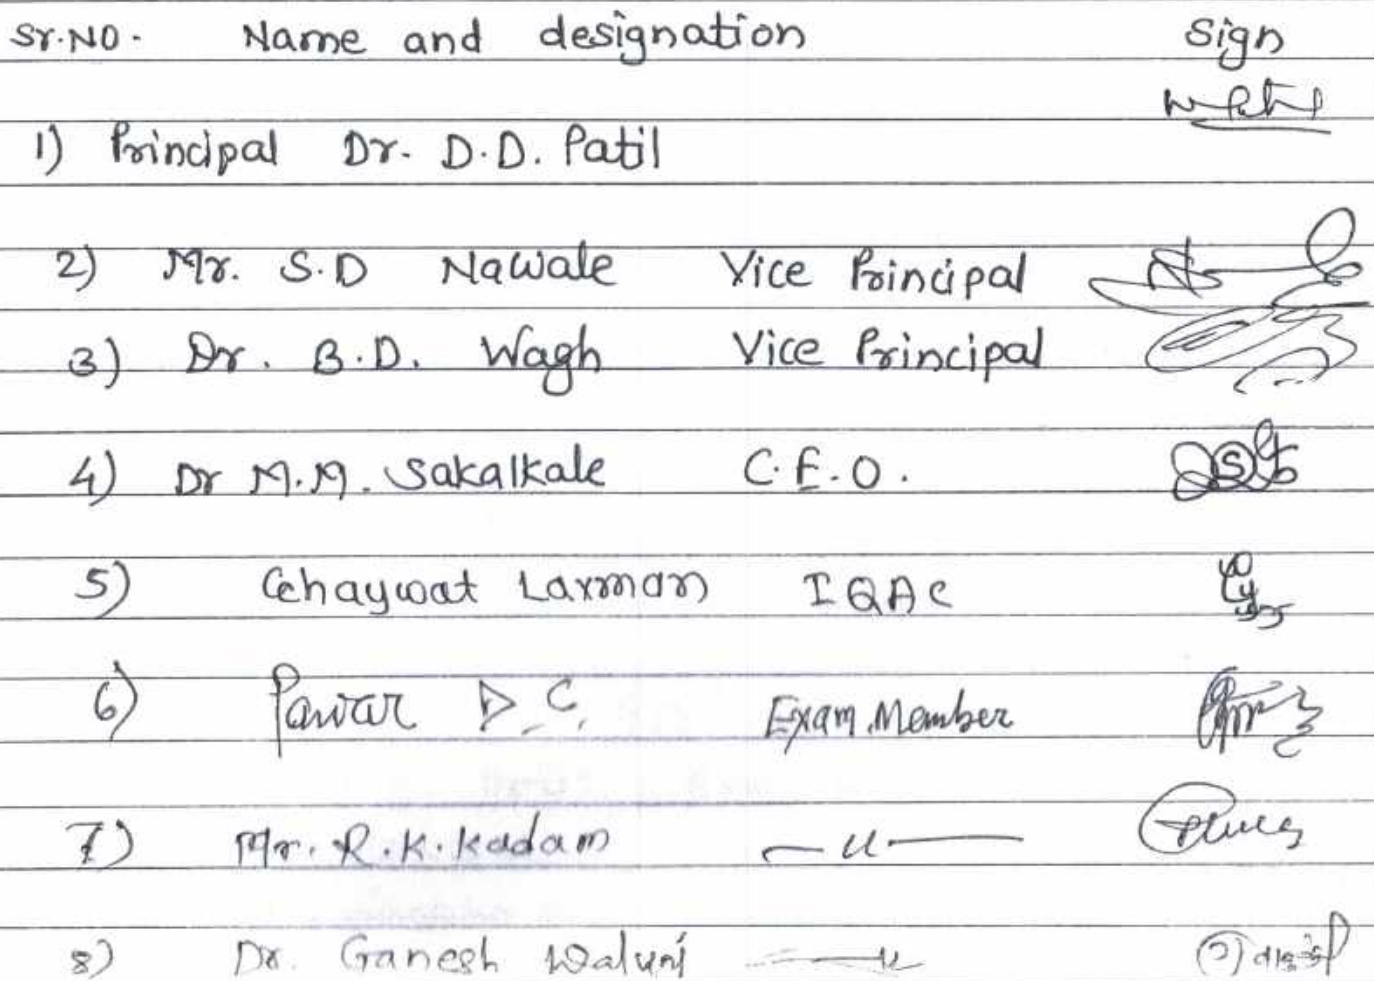 Sr.No. Name and designation Sign
1) Principal Dr. D.D. Patil
2) Mr. S.D Nawale Vice Principal
3) Dr. B.D. Wagh Vice Principal
4) Dr M.M. Sakalkale C.E.O.
5) Ghaywat Laxman IQAC
6) Pawar D.C. Exam Member
7) Mr. R.K. Kadam — 11 —
8) Dr. Ganesh — 11